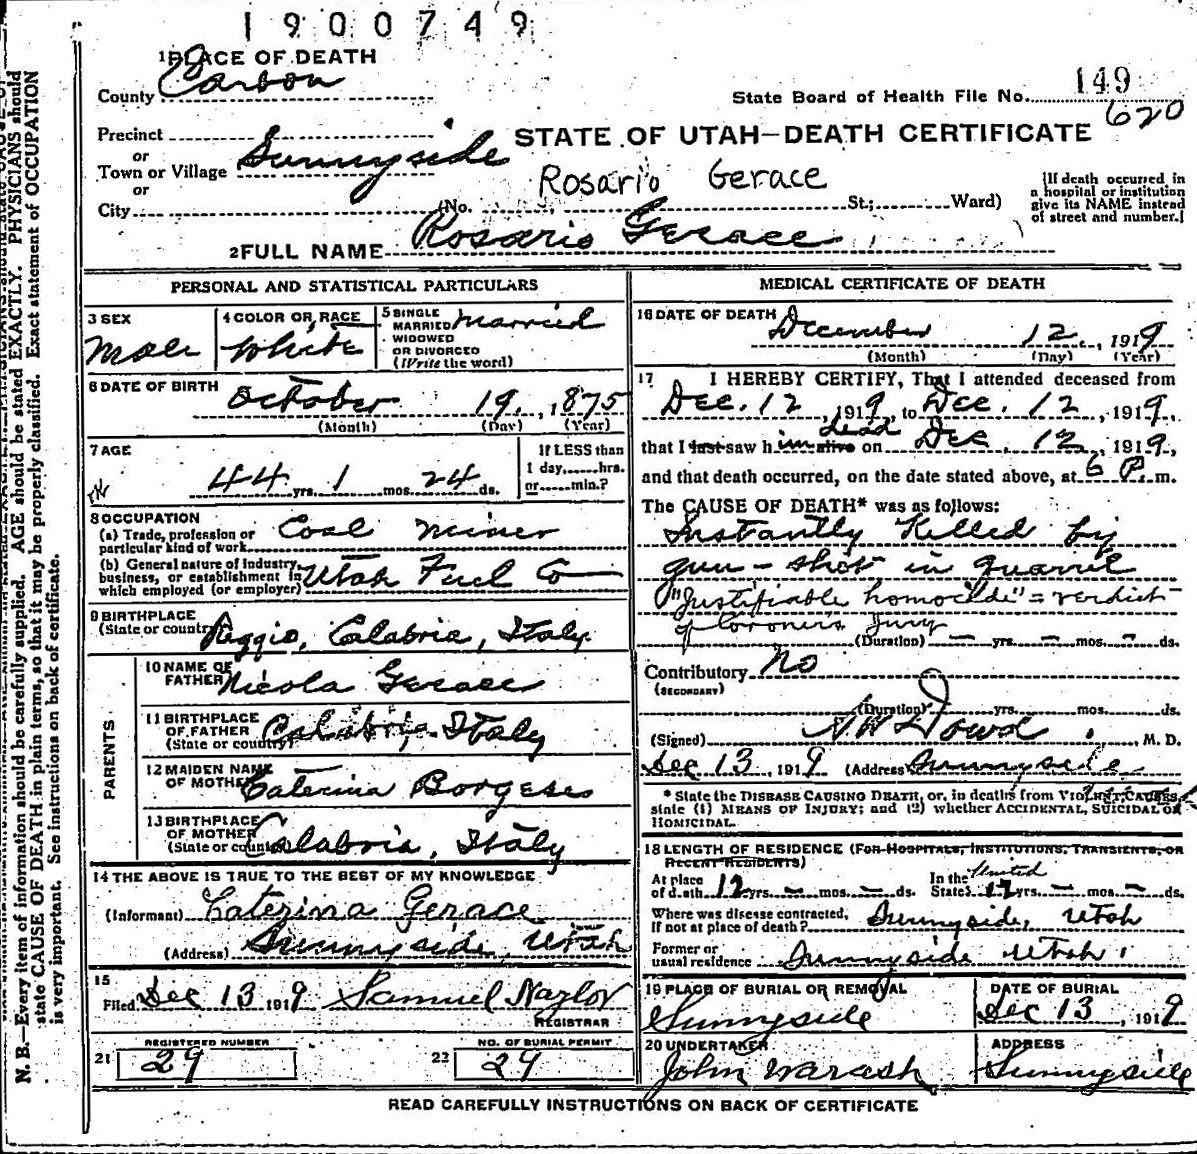 1900749
1 PLACE OF DEATH
County Carbon
State Board of Health File No. 149
620
Precinct
or
Town or Village Sunnyside
or
STATE OF UTAH—DEATH CERTIFICATE
Rosario Gerace
City (No. St.; Ward)
(If death occurred in
a hospital or institution
give its NAME instead
of street and number.)
2 FULL NAME Rosario Gerace
PERSONAL AND STATISTICAL PARTICULARS
3 SEX
Male
4 COLOR OR RACE
White
5 SINGLE
MARRIED
WIDOWED
OR DIVORCED
(Write the word)
Married
6 DATE OF BIRTH
October 19, 1875
(Month) (Day) (Year)
7 AGE
44 yrs. 1 mos. 24 ds.
If LESS than
1 day,......hrs.
or......min.?
8 OCCUPATION
(a) Trade, profession or
particular kind of work Coal miner
(b) General nature of industry,
business, or establishment in
which employed (or employer) Utah Fuel Co
9 BIRTHPLACE
(State or country) Reggio, Calabria, Italy
PARENTS
10 NAME OF
FATHER Nicola Gerace
11 BIRTHPLACE
OF FATHER
(State or country) Calabria, Italy
12 MAIDEN NAME
OF MOTHER Caterina Borgese
13 BIRTHPLACE
OF MOTHER
(State or country) Calabria, Italy
14 THE ABOVE IS TRUE TO THE BEST OF MY KNOWLEDGE
(Informant) Caterina Gerace
(Address) Sunnyside, Utah
15
Filed Dec 13 1919 Samuel Nazlov
REGISTRAR
21 REGISTERED NUMBER
29
22 NO. OF BURIAL PERMIT
29
MEDICAL CERTIFICATE OF DEATH
16 DATE OF DEATH
December 12, 1919
(Month) (Day) (Year)
17 I HEREBY CERTIFY, That I attended deceased from
Dec. 12, 1919, to Dec. 12, 1919,
that I last saw him alive dead on Dec. 12, 1919,
and that death occurred, on the date stated above, at 6 P. m.
The CAUSE OF DEATH* was as follows:
Instantly Killed by
gun-shot in quarrel
"Justifiable homocide" = verdict
of Coroners Jury
(Duration) — yrs. — mos. — ds.
Contributory No
(SECONDARY)
(Duration) yrs. mos. ds.
(Signed) Dowd, M. D.
Dec 13, 1919 (Address) Sunnyside
* State the DISEASE CAUSING DEATH, or, in deaths from VIOLENT CAUSES,
state (1) MEANS OF INJURY; and (2) whether ACCIDENTAL, SUICIDAL OR
HOMICIDAL.
18 LENGTH OF RESIDENCE (FOR HOSPITALS, INSTITUTIONS, TRANSIENTS, OR
RECENT RESIDENTS)
At place
of death 12 yrs. — mos. — ds.
In the United
States 17 yrs. — mos. — ds.
Where was disease contracted,
If not at place of death? Sunnyside, Utah
Former or
usual residence Sunnyside Utah
19 PLACE OF BURIAL OR REMOVAL
Sunnyside
DATE OF BURIAL
Dec 13, 1919
20 UNDERTAKER
John Warash
ADDRESS
Sunnyside
READ CAREFULLY INSTRUCTIONS ON BACK OF CERTIFICATE
N. B.—Every item of information should be carefully supplied. AGE should be stated EXACTLY. PHYSICIANS should
state CAUSE OF DEATH in plain terms, so that it may be properly classified. Exact statement of OCCUPATION
is very important. See instructions on back of certificate.